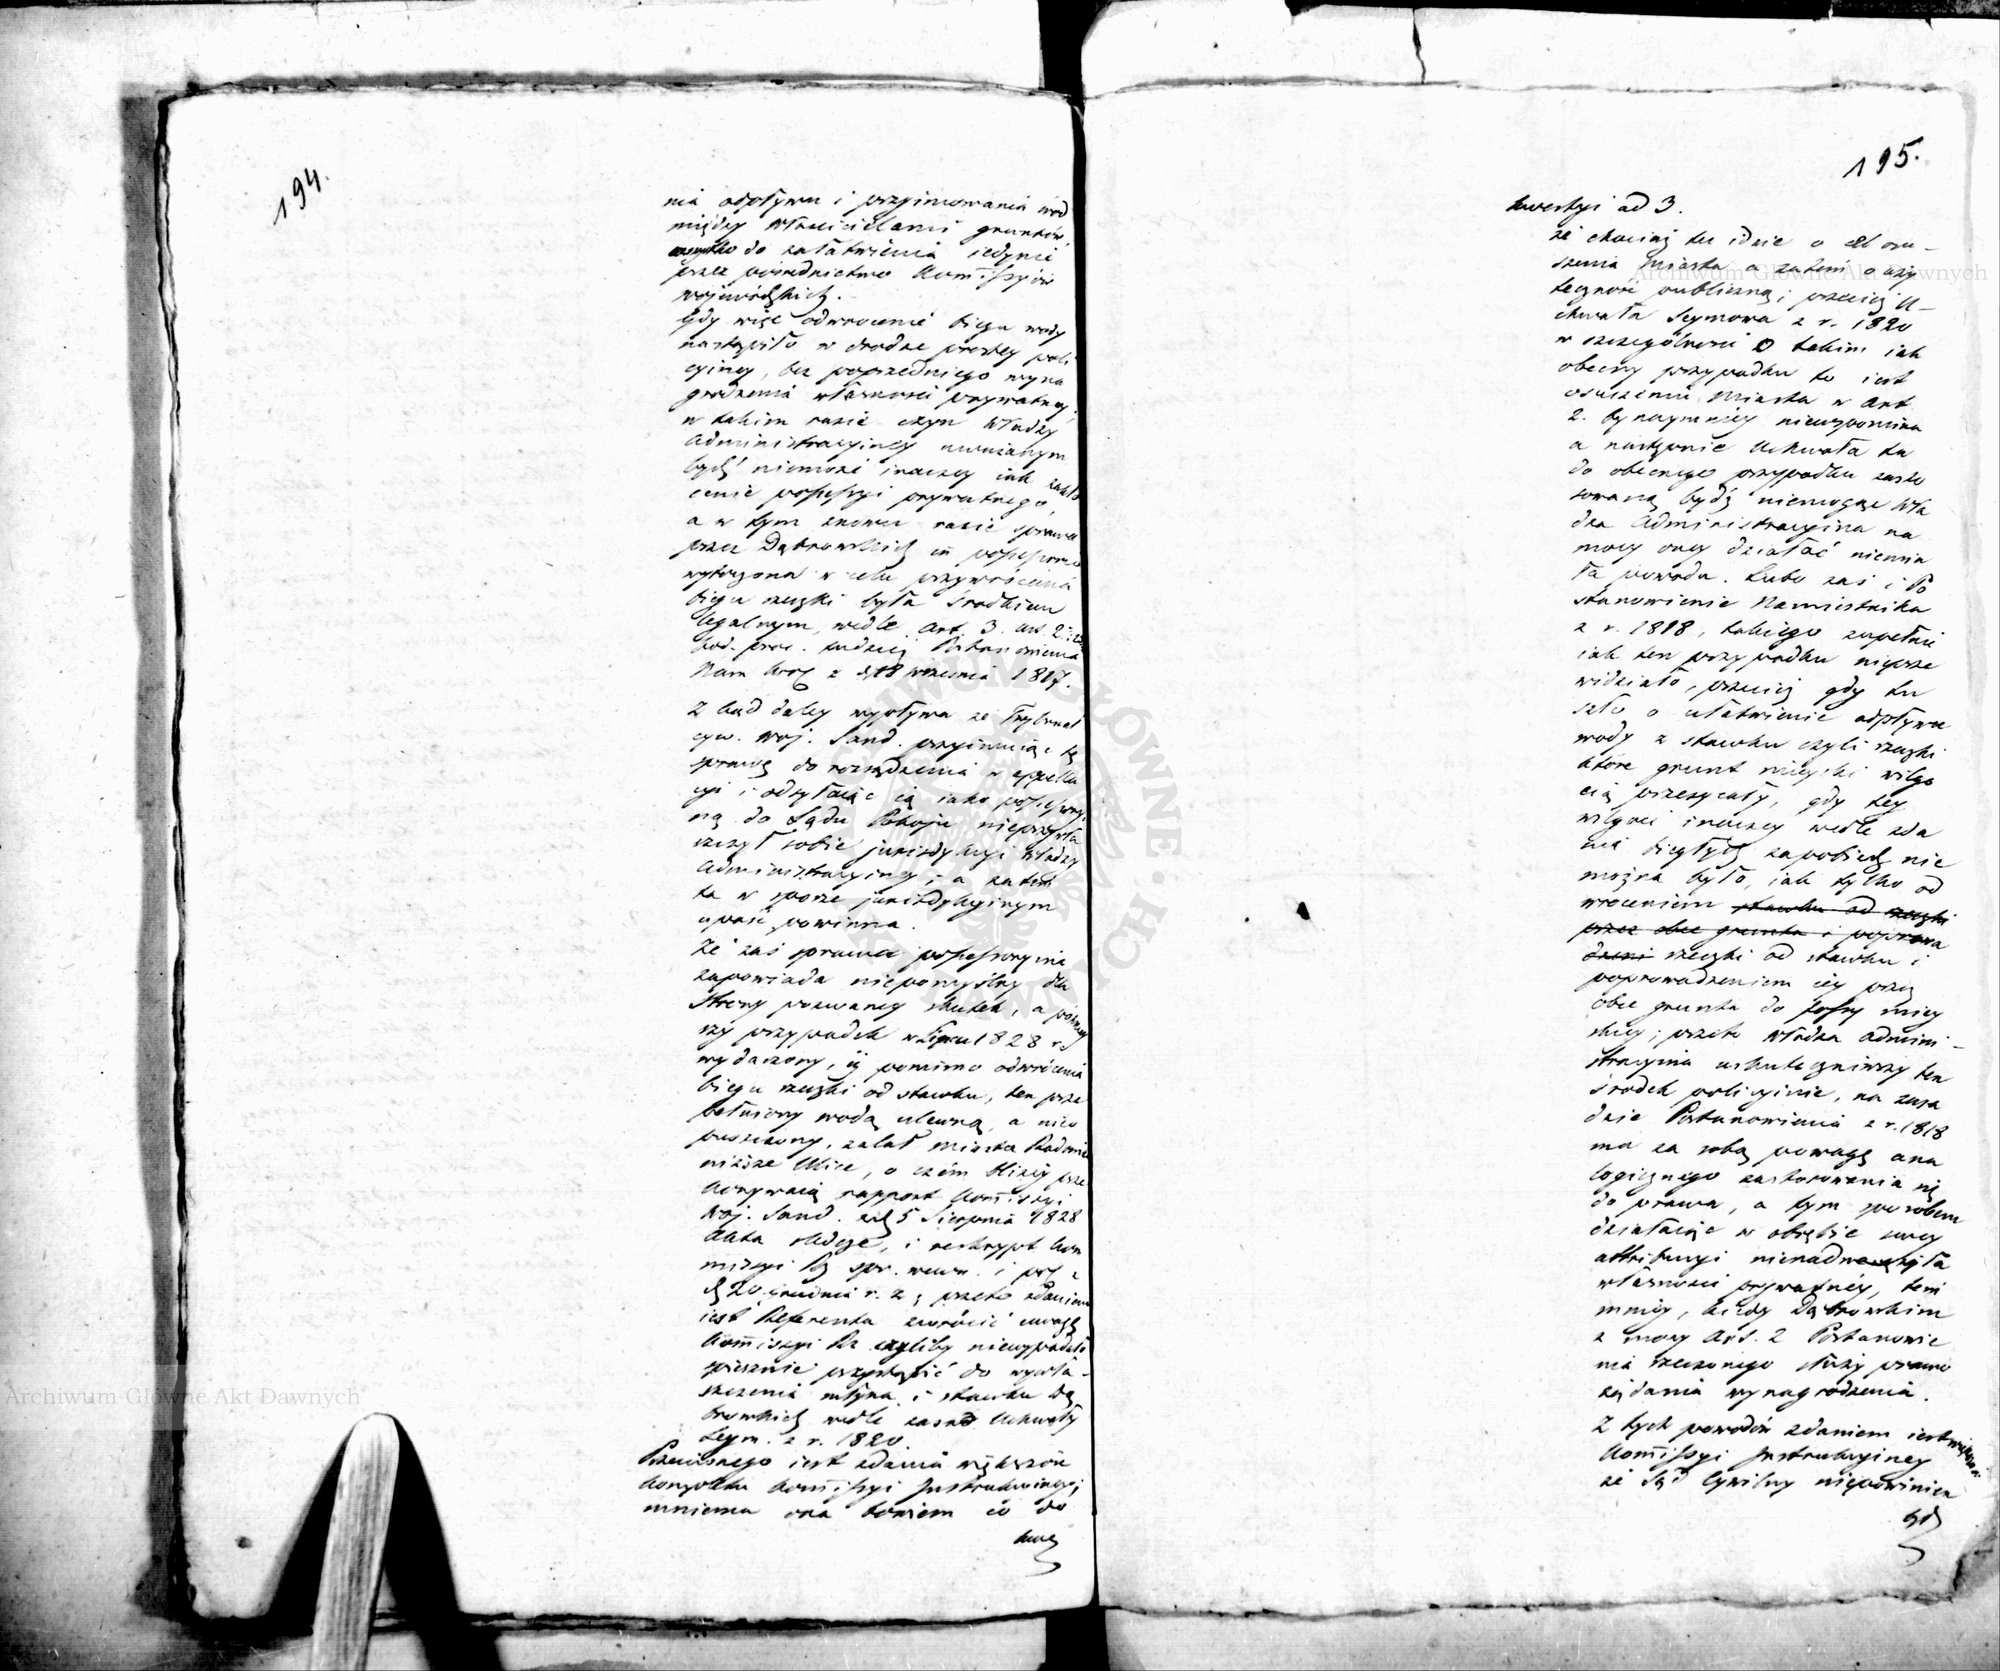 194.
nia odpływu i przyimowania wod
między Właścicielami gruntów,
do załatwienia iedynie
przez pośrednictwo Kommissyów
Wojewódzkich. -
Gdy więc odwrocenie biegu wody
nastąpiło w drodze prostey poli
cyiney, bez poprzedniego wyna
grodzenia własności prywatney,
w takim razie czyn Władzy
Administracyiney uważanym
bydź niemoże inaczey iak zakłó
cenie possessyi prywatnego,
a w tym znowu razie sprawa
przez Dąbrowskich in possessorio
wytoczona w celu przywrócenia
biegu rzeczki była środkiem
legalnym, wedle Art. 3. ust. 2
kod. proc. tudzież Postanowienia
Nam Król z d. 18 września 1817.
Z kąd daley wypływa że Trybunał
cyw. Woj. Sand. przyimuiąc tę
sprawę do rozsądzenia w appella
cyi i odsyłaiąc ią iako possessoryi
ną do Sądu Pokoju nieprzywła
szczył sobie jurisdykcyi Władzy
Administracyiney; a zatem
ta w sporze jurisdykcyinym
upaść powinna.
Że zaś sprawa possessoryina
zapowiada niepomyślny dla
Strony pozwaney skutek, a późniey
szy przypadek w Lipcu 1828 r.
wydarzony, iż pomimo odwrócenia
biegu rzeczki od stawku, ten prze
pełniony wodą ulewną, a nieo
puszczony, zalał miasta Radomia
niższe Ulice, o czém bliżéy prze
konywaią rapport Kommissyi
Woj. Sand. z d. 5 Sierpnia 1828
Akta śledcze, i reskrypt Kom
missyi Rz. spr. wewn. i pol. z
d. 20. Grudnia r. z; przeto zdaniem
iest Referenta zwrócić uwagę
Kommissyi Rz. czyliby niewypadało
spiesznie przystąpić do wywła-
szczenia młyna i stawku Dą
browskich wedle zasad Uchwały
Seym. z r. 1820.
Przeciwnego iest zdania większość
Kompletu Kommissyi Instrukcyiney;
mniema ona bowiem co do
kwe
195.
kwestyi ad 3.
że chociaż tu idzie o cel osu-
szenia Miasta a zatem o uży
teczność publiczną; przecież U-
chwała Seymowa z r. 1820
w szczególności o takim iak
obecny przypadku to iest
osuszeniu Miasta w Art
2. bynaymniey niewspomina
a następnie Uchwała ta
do obecnego przypadku zasto
sowaną bydź niemogąc Wła
dza Administracyina na
mocy oney działać niemia
ła powodu. Lubo zaś i Po
stanowienie Namiestnika
z r. 1818, takiego zupełnie
iak ten przypadku nieprze
widziało, przecież gdy tu
szło o ułatwienie odpływu
wody z stawku czyli rzeczki
które grunt mieyski wilgo
cią przesycały, gdy tey
wilgoci inaczey wedle zda
nia biegłych zapobiedz nie
można było, iak tylko od
wroceniem stawku od rzeczki
przez obce grunta i poprowa
dzeni rzeczki od stawku i
poprowadzeniem iéy przez
obce grunta do fossy miey
skiey; przeto Władza admini-
stracyina uskuteczniwszy ten
środek policyinie, na zasa
dzie Postanowienia z r. 1818
ma za sobą powagę ana
logicznego zastosowania się
do prawa, a tym sposobem
działaiąc w obrębie swey
attribucyi nienadwerężyła
własności prywatnéy, tem
mniéy, kiedy Dąbrowskim
z mocy Art. 2 Postanowie
nia rzeczonego służy prawo
żądania wynagrodzenia.
Z tych powodów zdaniem iest większości
Kommissyi Instrukcyiney
że Sąd Cywilny niepowinien
był